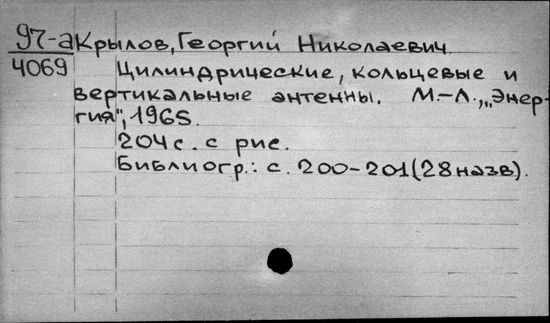 97-а Крылов, Георгий Николаевич.
4069 Цилиндрические, кольцевые и
вертикальные антенны. М.-Л., „Энер-
гия", 1965.
204 с. с рис.
Библиогр.: с. 200-201 (28 назв).